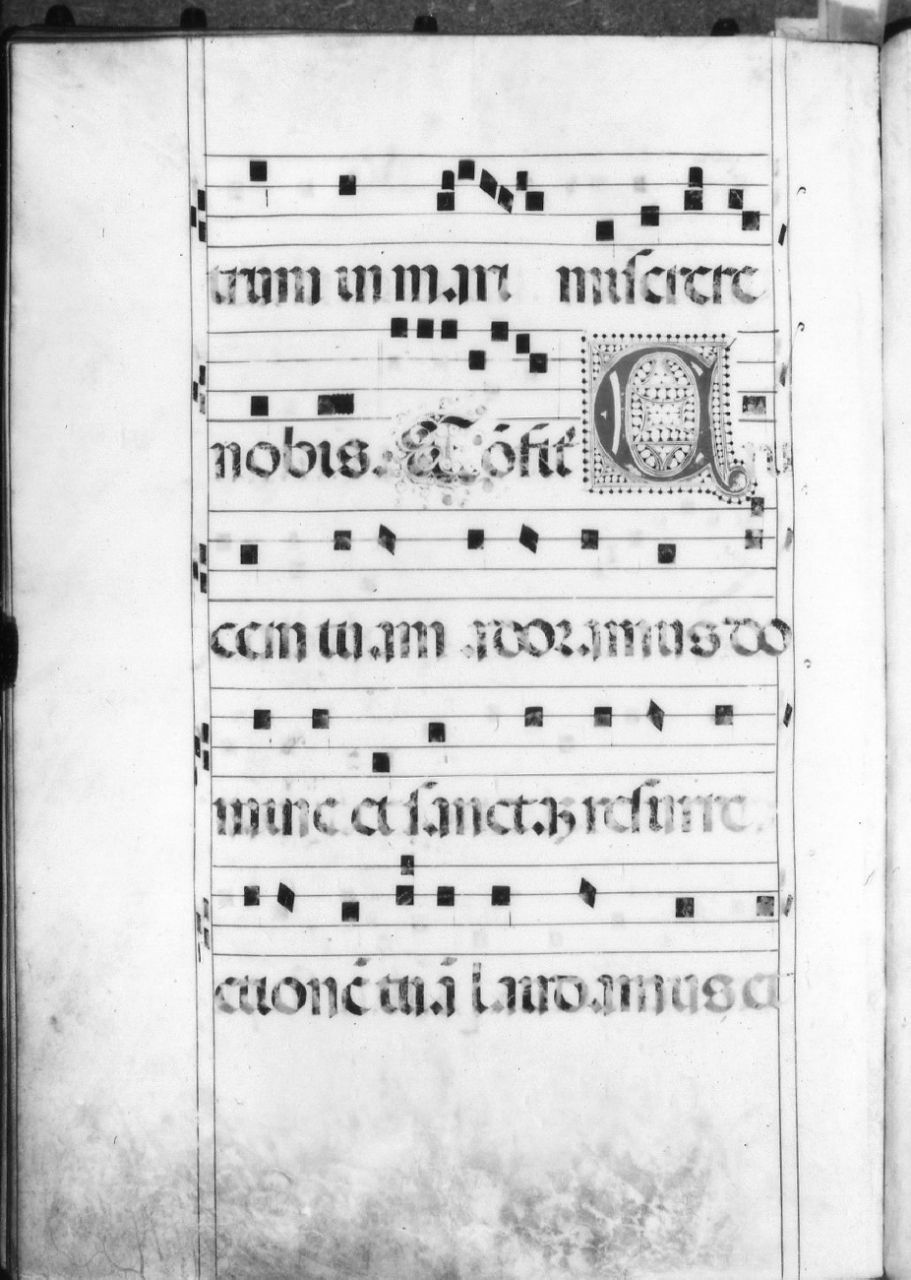 trum in mani miserere
nobis. Cōfit Cru
cem tuam adoramus do
mine et sanctaʒ resurre
ctionē tuā laudamus et